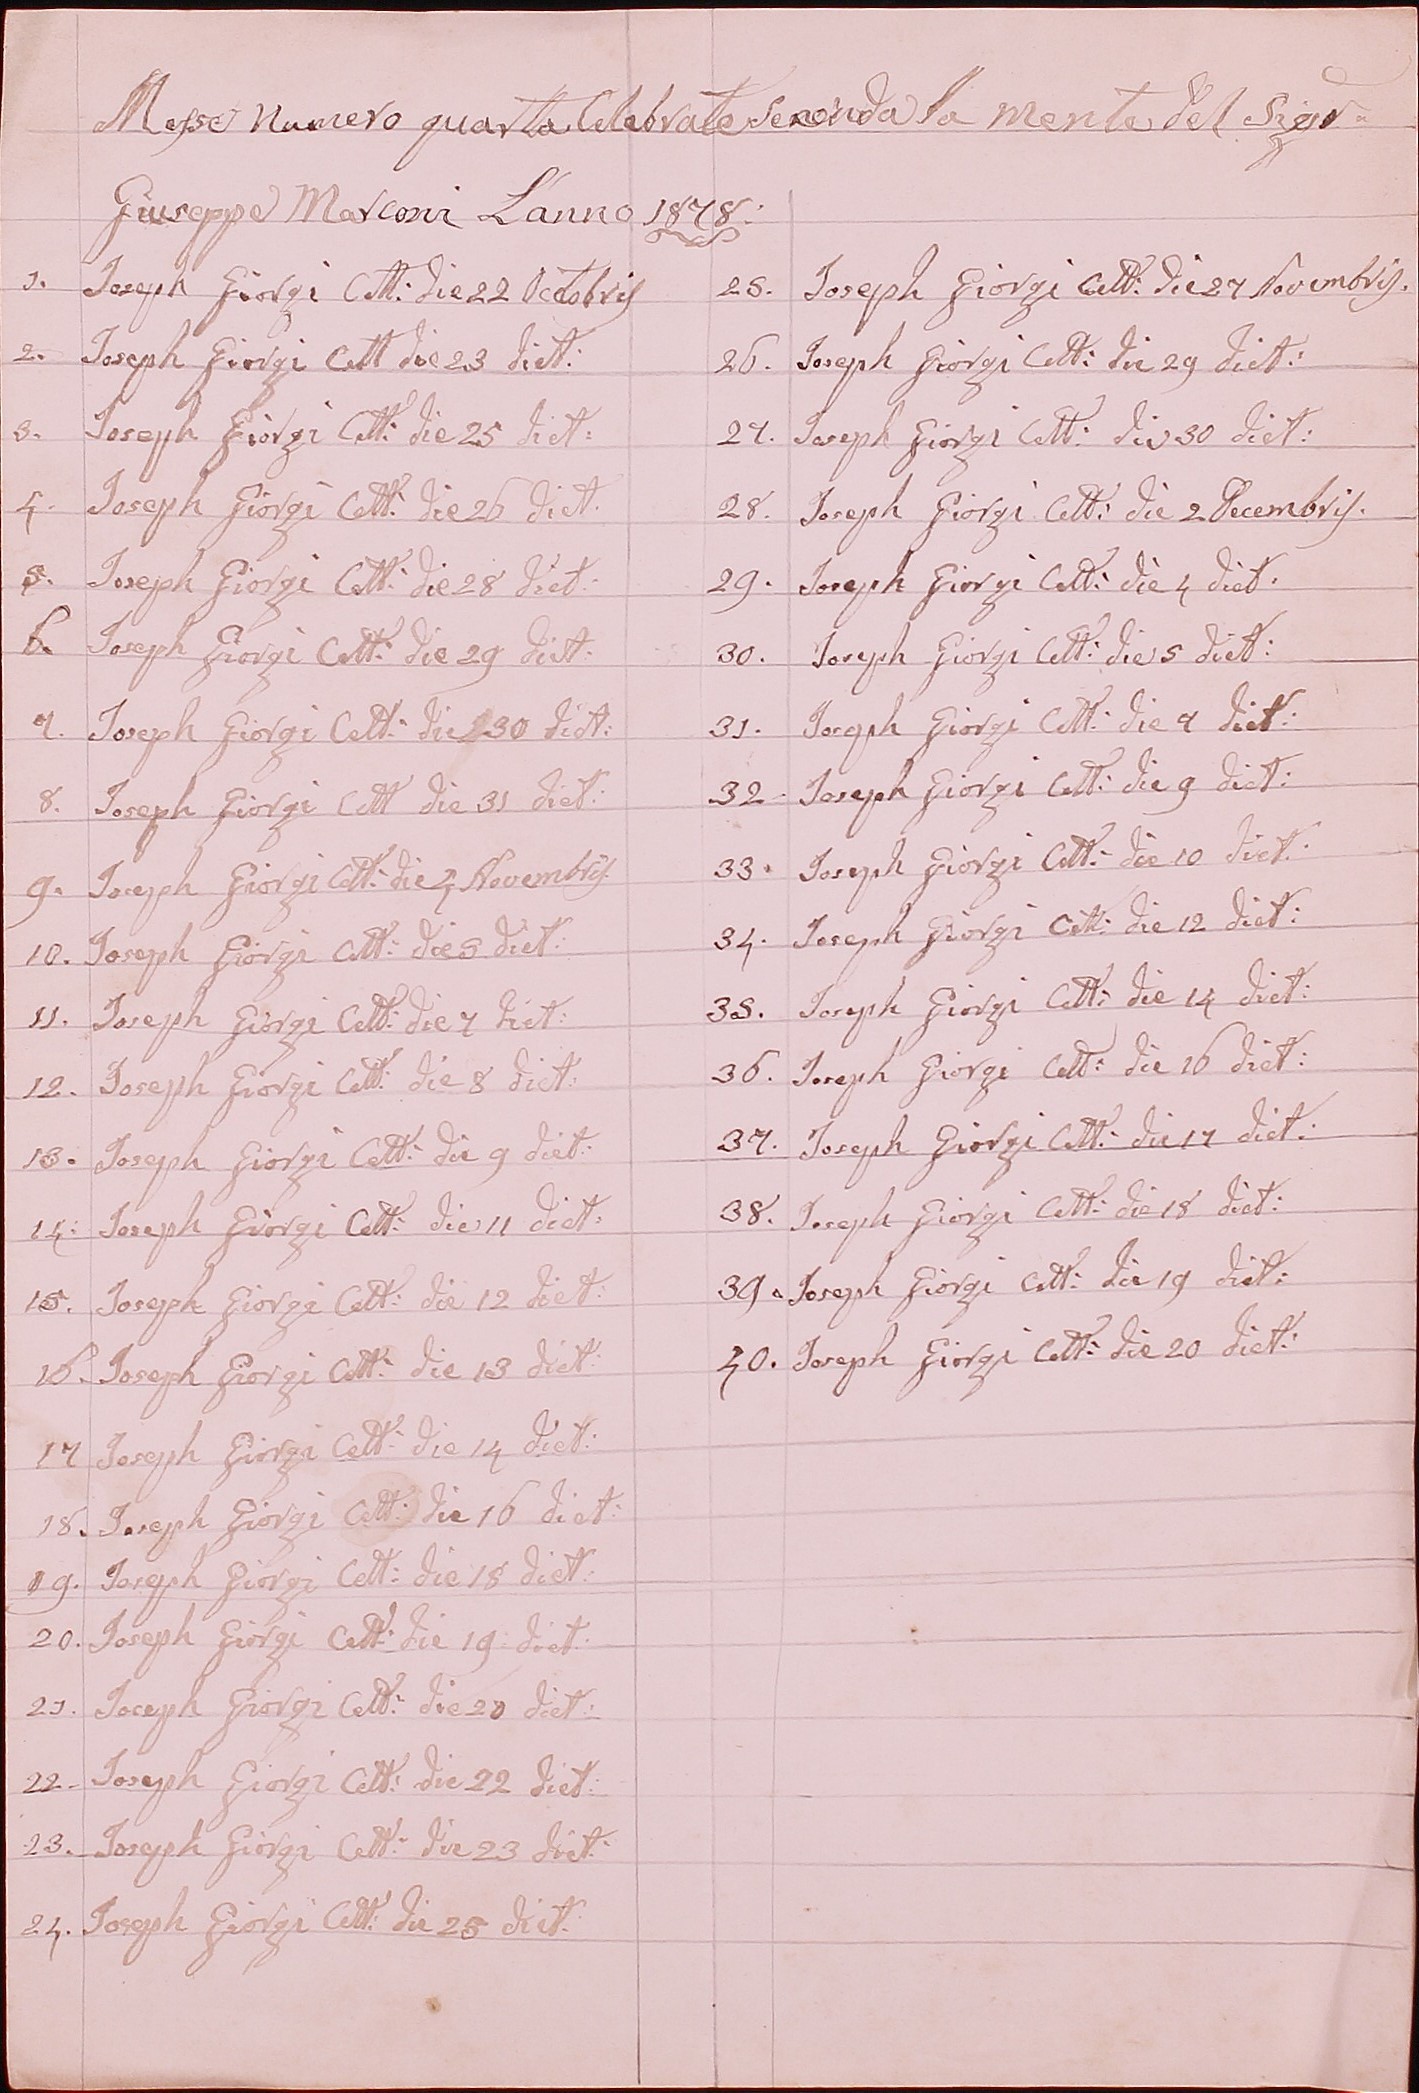 Messe Numero quarta Celebrate seconda la mente del Sigor
Giuseppe Marconi L'anno 1878:
1. Joseph Giorgi Cett: die 22 Octobris
2. Joseph Giorgi Cett die 23 dict:
3. Joseph Giorgi Cett: die 25 dict:
4. Joseph Giorgi Cett: die 26 dict.
5. Joseph Giorgi Cett: die 28 dict:
6. Joseph Giorgi Cett: die 29 dict:
7. Joseph Giorgi Cett: die 30 dict:
8. Joseph Giorgi Cett die 31 dict:
9. Joseph Giorgi Cett: die 4 Novembris
10. Joseph Giorgi Cett: die 5 dict:
11. Joseph Giorgi Cett: die 7 dict:
12. Joseph Giorgi Cett: die 8 dict:
13. Joseph Giorgi Cett: die 9 dict:
14: Joseph Giorgi Cett: die 11 dict:
15. Joseph Giorgi Cett: die 12 dict:
16. Joseph Giorgi Cett: die 13 dict:
17 Joseph Giorgi Cett: die 14 dict:
18. Joseph Giorgi Cett: die 16 dict:
19. Joseph Giorgi Cett: die 18 dict:
20. Joseph Giorgi Cett: die 19 dict:
21. Joseph Giorgi Cett: die 20 dict:
22. Joseph Giorgi Cett: die 22 dict:
23. Joseph Giorgi Cett: die 23 dict:
24. Joseph Giorgi Cett: die 25 dict:
25. Joseph Giorgi Cett: die 27 Novembris.
26. Joseph Giorgi Cett: die 29 dict:
27. Joseph Giorgi Cett: die 30 dict:
28. Joseph Giorgi Cett: die 2 Decembris.
29. Joseph Giorgi Cett: die 4 dict:
30. Joseph Giorgi Cett: die 5 dict:
31. Joseph Giorgi Cett: die 7 dict:
32 Joseph Giorgi Cett: die 9 dict:
33. Joseph Giorgi Cett: die 10 dict:
34. Joseph Giorgi Cett: die 12 dict:
35. Joseph Giorgi Cett: die 14 dict:
36. Joseph Giorgi Cett: die 16 dict:
37. Joseph Giorgi Cett: die 17 dict:
38. Joseph Giorgi Cett: die 18 dict:
39. Joseph Giorgi Cett: die 19 dict:
40. Joseph Giorgi Cett: die 20 dict: